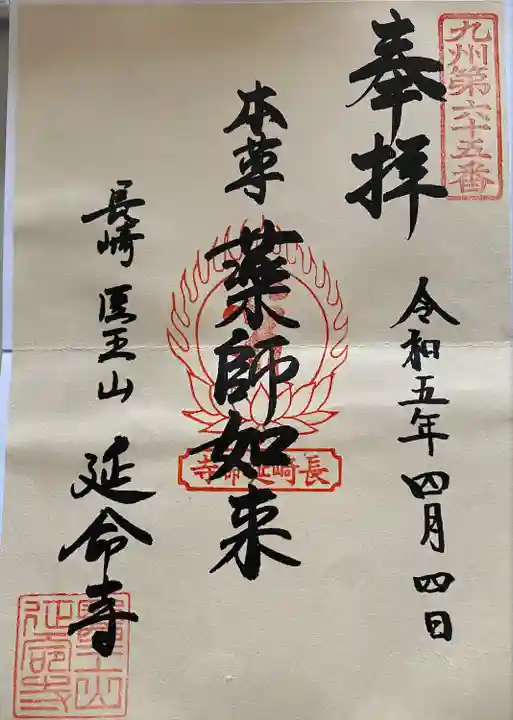 九州第六十五番
奉拝
令和五年四月四日
本尊 薬師如来
長崎延命寺
長崎 医王山 延命寺
醫王山
延命寺